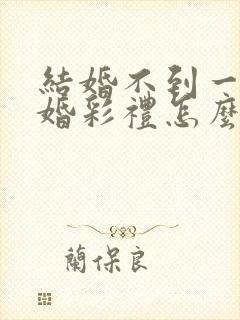 結婚不到一
婚彩禮怎麼
蘭保良